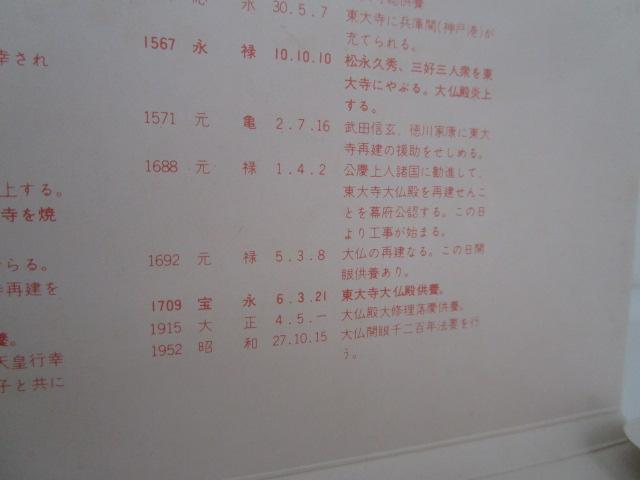 永 30.5.7 東大寺に兵庫関(神戸港)が
充てられる。
1567 永 禄 10.10.10 松永久秀、三好三人衆を東
大寺にやぶる。大仏殿炎上
する。
1571 元 亀 2.7.16 武田信玄、徳川家康に東大
寺再建の援助をせしめる。
1688 元 禄 1.4.2 公慶上人諸国に勧進して、
東大寺大仏殿を再建せんこ
とを幕府公認する。この日
より工事が始まる。
1692 元 禄 5.3.8 大仏の再建なる。この日開
眼供養あり。
1709 宝 永 6.3.21 東大寺大仏殿供養。
1915 大 正 4.5.一 大仏殿大修理落慶供養。
1952 昭 和 27.10.15 大仏開眼千二百年法要を行
う。
幸され
上する。
寺を焼
らる。
再建を
天皇行幸
子と共に